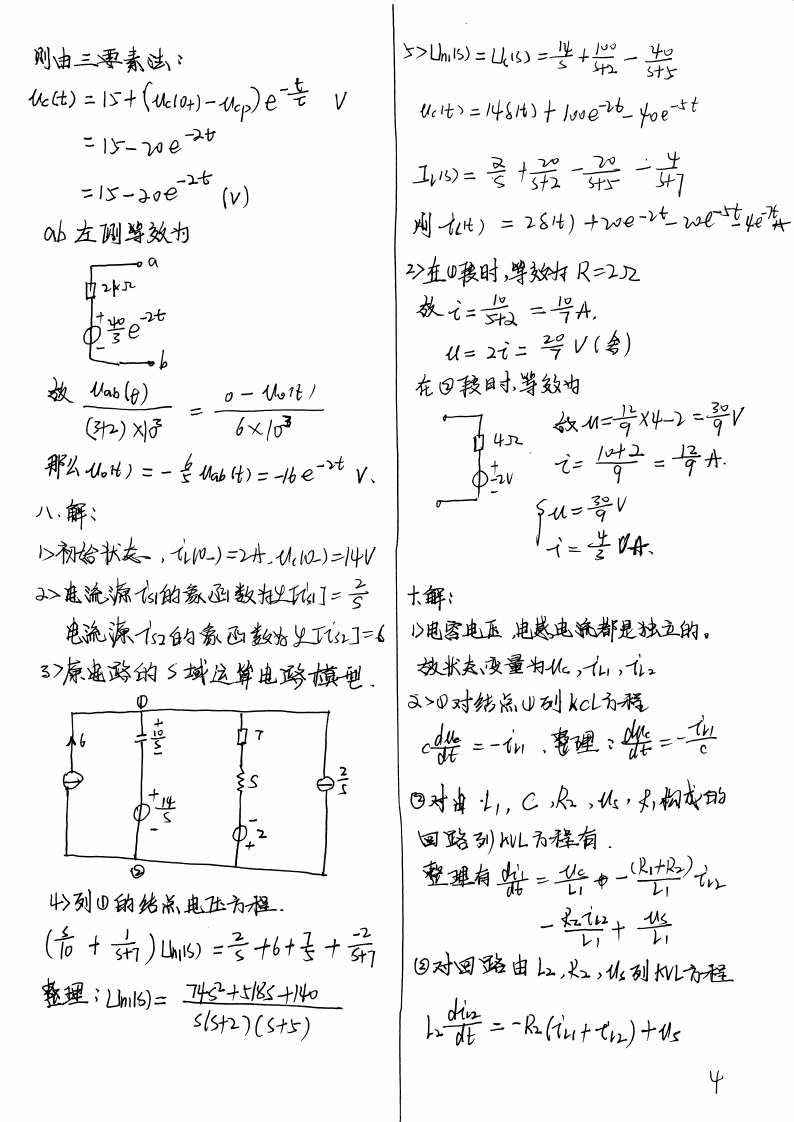 则由三要素法:
uc(t) = 15+(uc(0+)-ucp)e^{-t/τ} V
= 15-20e^{-2t}
=15-20e^{-2t} (V)
ab左侧等效为
a
2kΩ
+ 40/3 e^{-2t} -
b
故 uab(t)/((3+2)×10^3) = (0-uo(t))/(6×10^3)
那么uo(t) = -6/5 uab(t) = -16e^{-2t} V.
八.解:
1>初始状态, iL(0-)=2A, uc(0-)=14V
2>电流源is1的象函数为L[is1]= 2/s
电流源is2的象函数为L[is2]=6
3>原电路的S域运算电路模型.
①
6
+ 10/s -
+ 14/s -
7
s
- 2 +
2/s
②
4>列①的结点电压方程.
(s/10 + 1/(s+7)) Un1(s) = 2/s +6+ 7/5 + -2/(s+7)
整理: Un1(s)= (74s²+518s+140)/(s(s+2)(s+5))
5>Un1(s)=Uc(s)= 14/s + 100/(s+2) - 40/(s+5)
uc(t)=14δ(t)+100e^{-2t}-40e^{-5t}
IL(s)= 2/s + 20/(s+2) - 20/(s+5) - 4/(s+7)
则 iL(t) = 2δ(t)+20e^{-2t}-20e^{-5t}-4e^{-7t}A
2>在①段时,等效为R=2Ω
故 i= 10/(5+2) = 10/7 A.
u= 2i= 20/7 V(舍)
在②段时,等效为
4Ω
+ -2V -
故u= 12/9 ×4-2 = 30/9 V
i= (10+2)/9 = 12/9 A.
{ u= 30/9 V
i= 4/3 A.
十.解:
1>电容电压 电感电流都是独立的。
故状态变量为uc, iL1, iL2
2>①对结点①列KCL方程
c duc/dt = -iL1 .整理: duc/dt = - iL1/c
②对由 L1, C, R2, us, R1构成的
回路列KVL方程有.
整理有 diL1/dt = uc/L1 - (R1+R2)/L1 iL2
- R2iL2/L1 + us/L1
③对回路由L2, R2, us列KVL方程
L2 diL2/dt = -R2(iL1+iL2)+us
4